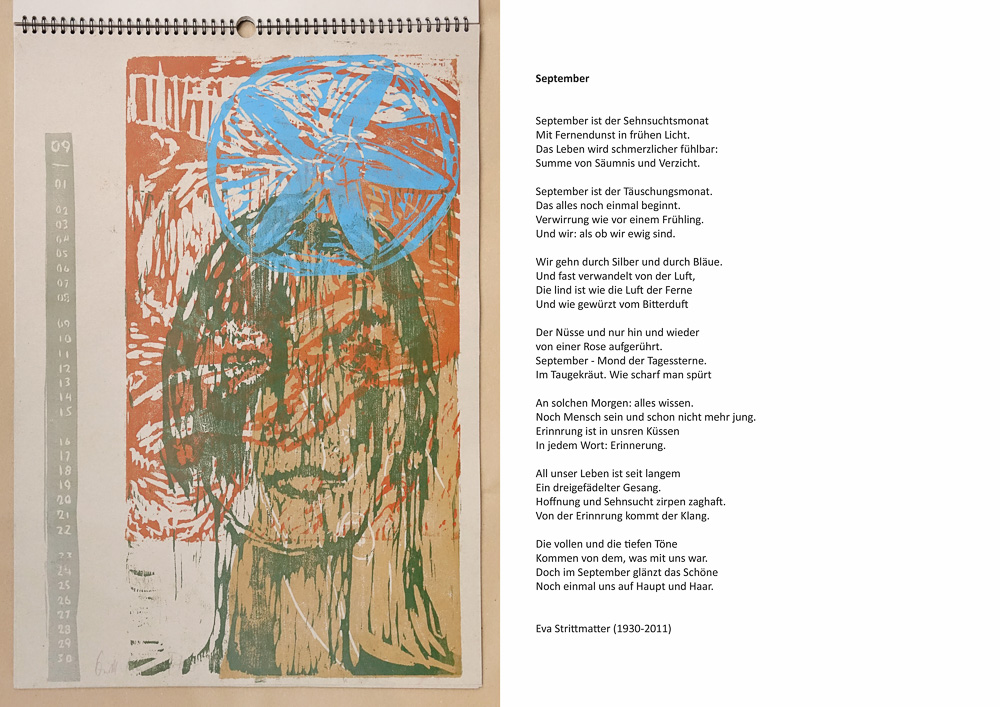 09
01
02
03
04
05
06
07
08
09
10
11
12
13
14
15
16
17
18
19
20
21
22
23
24
25
26
27
28
29
30
September
September ist der Sehnsuchtsmonat
Mit Fernendunst in frühen Licht.
Das Leben wird schmerzlicher fühlbar:
Summe von Säumnis und Verzicht.
September ist der Täuschungsmonat.
Das alles noch einmal beginnt.
Verwirrung wie vor einem Frühling.
Und wir: als ob wir ewig sind.
Wir gehn durch Silber und durch Bläue.
Und fast verwandelt von der Luft,
Die lind ist wie die Luft der Ferne
Und wie gewürzt vom Bitterduft
Der Nüsse und nur hin und wieder
von einer Rose aufgerührt.
September - Mond der Tagessterne.
Im Taugekräut. Wie scharf man spürt
An solchen Morgen: alles wissen.
Noch Mensch sein und schon nicht mehr jung.
Erinnrung ist in unsren Küssen
In jedem Wort: Erinnerung.
All unser Leben ist seit langem
Ein dreigefädelter Gesang.
Hoffnung und Sehnsucht zirpen zaghaft.
Von der Erinnrung kommt der Klang.
Die vollen und die tiefen Töne
Kommen von dem, was mit uns war.
Doch im September glänzt das Schöne
Noch einmal uns auf Haupt und Haar.
Eva Strittmatter (1930-2011)